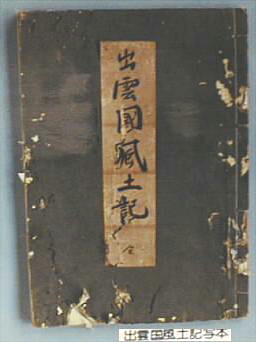 出雲國風土記 全
出雲国風土記写本